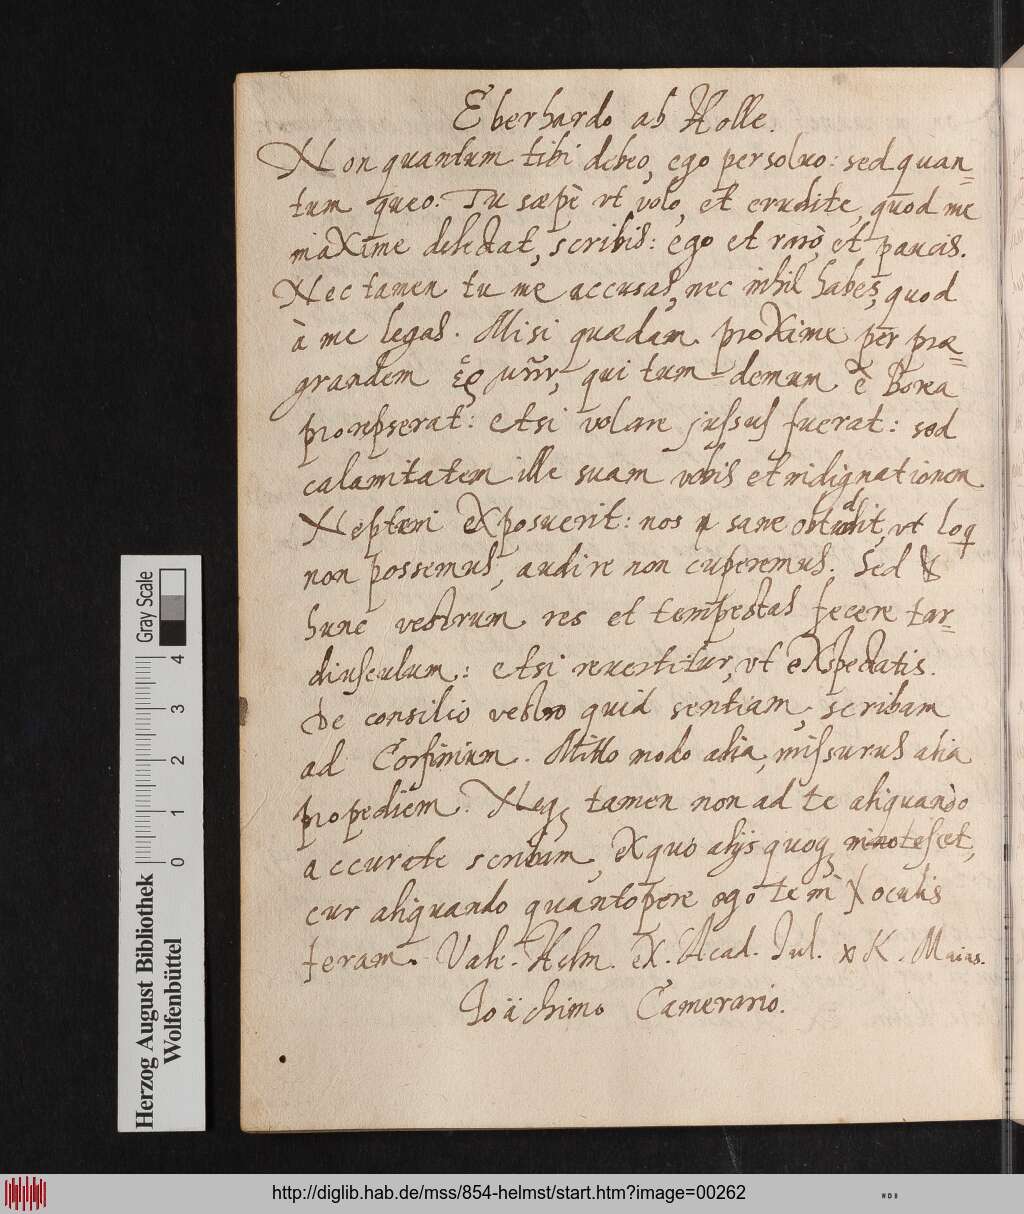 Eberhardo ab Holle.
Non quantum tibi debeo, ego persoluo: sed quan=
tum queo. Tu sæpè vt volo, et erudite, quod me
maxime delectat, scribis: ego et raro, et paucis.
Nec tamen tu me accusas, nec nihil habes, quod
à me legas. Misi quædam proxime per præ=
grandem qui tum demum è Borea
prorepserat: etsi volare jussus fuerat: sed
calamitatem ille suam vobis et indignationem
Neptuni exposuerit: nos sane obtudit, vt loq
non possemus, audire non cuperemus. Sed &
hunc vestrum res et tempestas fecere tar=
diusculum: etsi reuertitur, vt exspectatis.
De consilio vestro quid sentiam, scribam
ad Corfinium. Mitto modo alia, missurus alia
propediem. Neq tamen non ad te aliquando
accurate scribam, ex quo alijs quoq
cur aliquando quantopere ego te in oculis
feram. Vale. Helm. ex. Acad. Jul. x K. Maias.
Joächimo Camerario.
Herzog August Bibliothek
Wolfenbüttel
0 1 2 3 4
Gray Scale
http://diglib.hab.de/mss/854-helmst/start.htm?image=00262